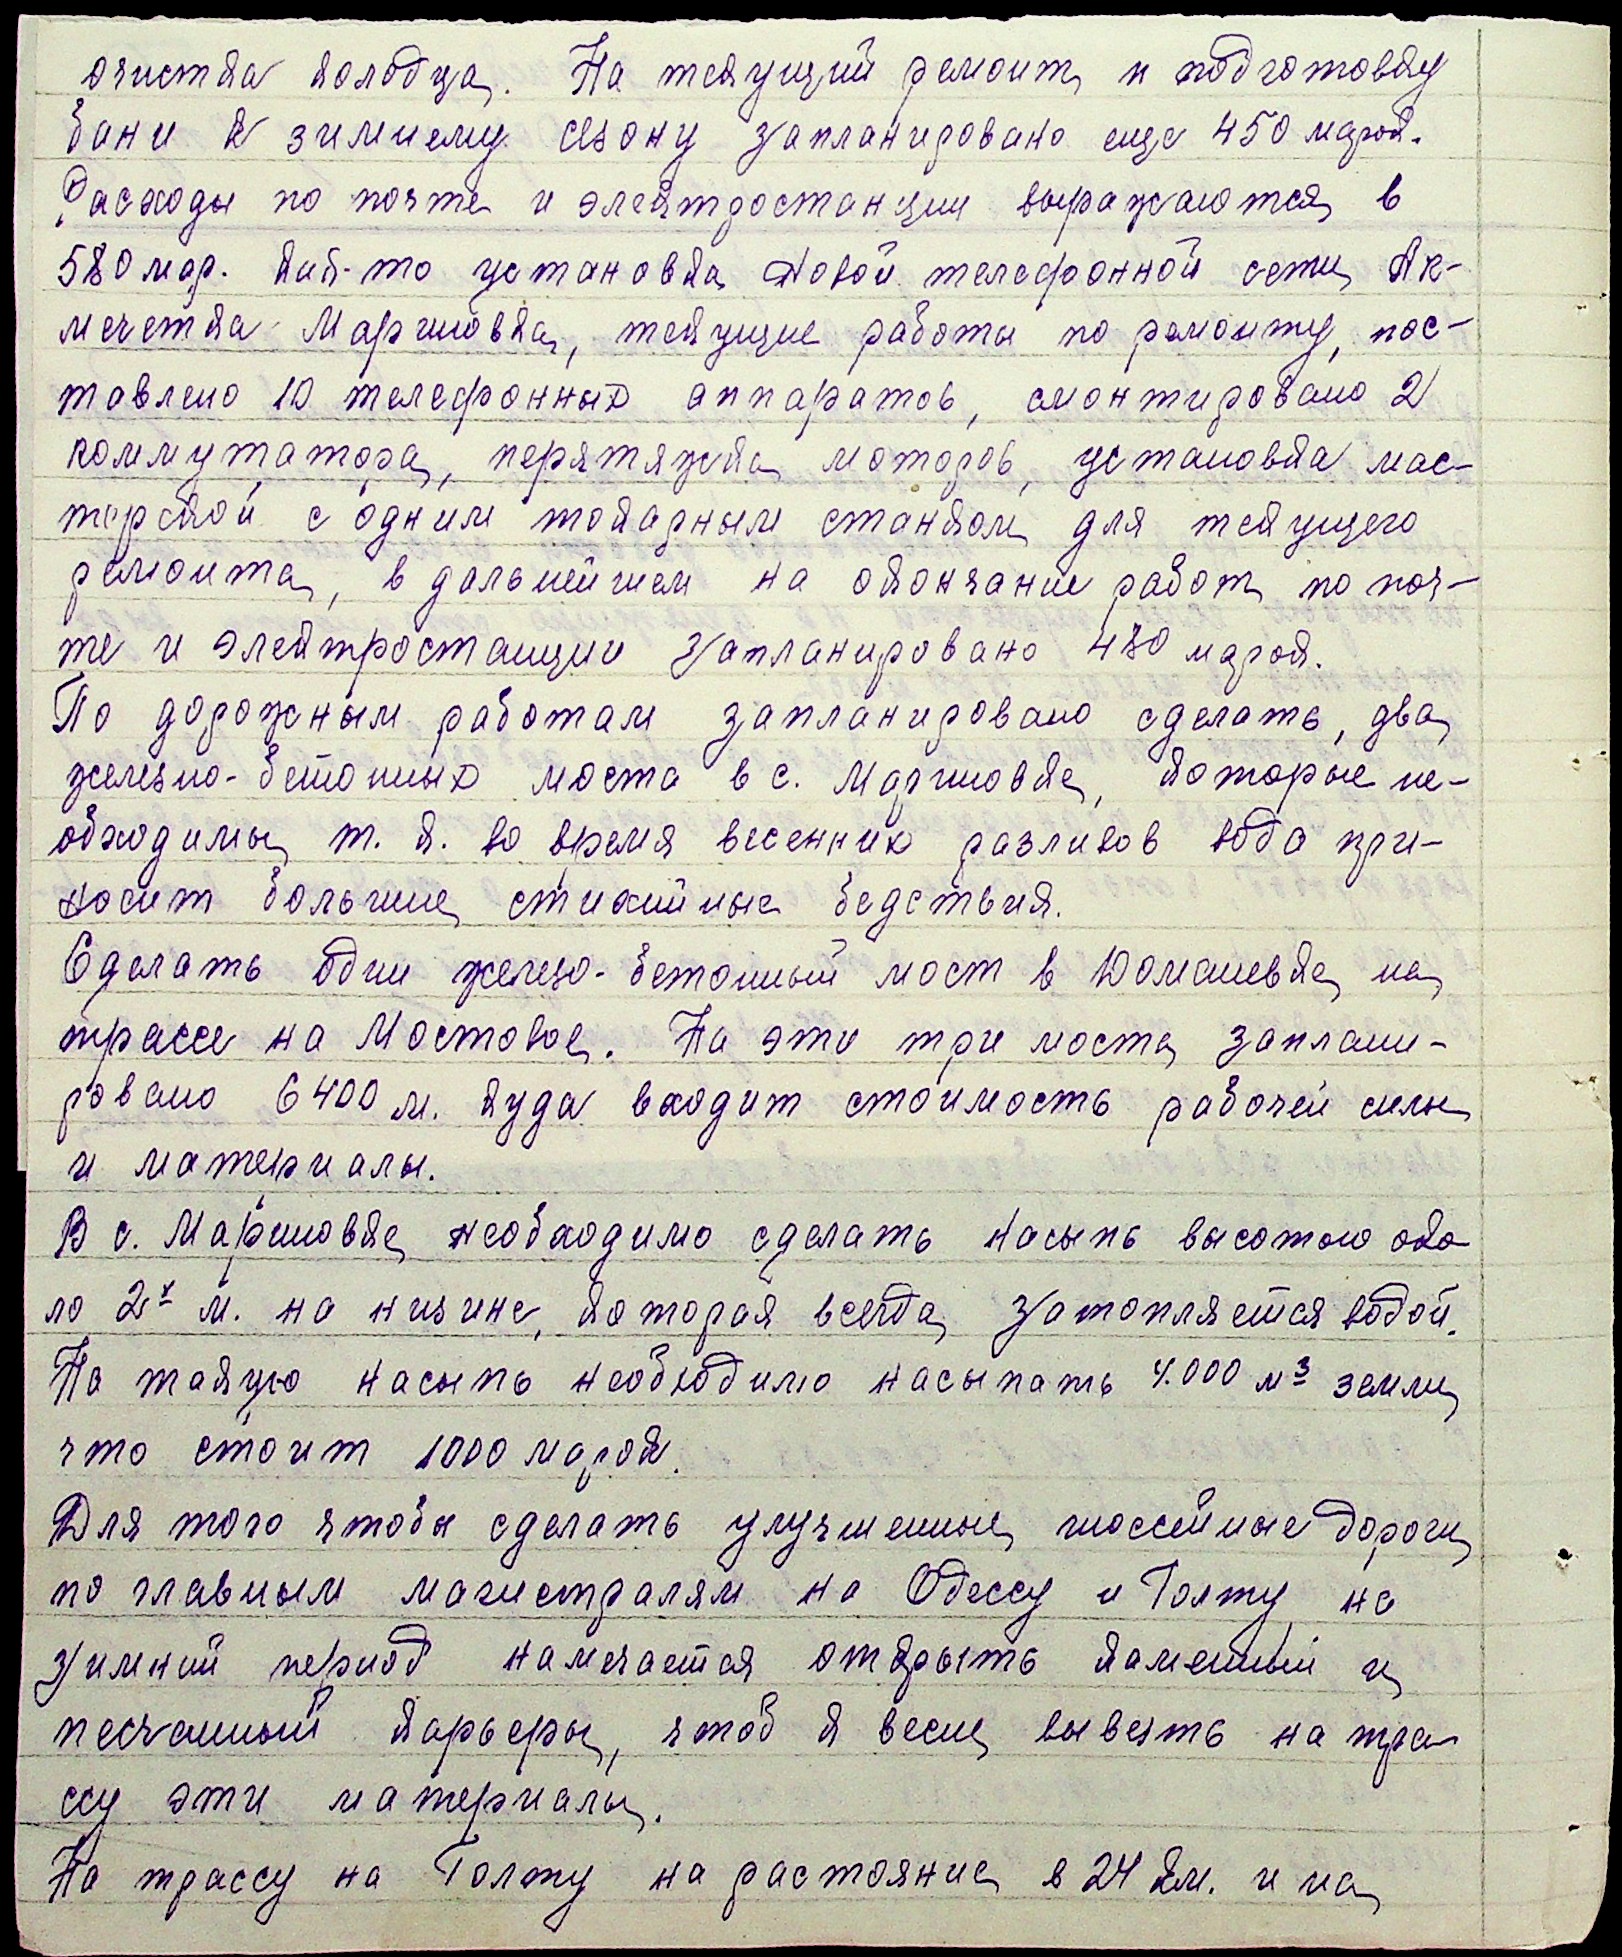 очистка колодца. На текущий ремонт и подготовку
бани к зимнему сезону запланировано еще 450 марок.
Расходы по почте и электростанции выражаются в
580 мар. как-то установка новой телефонной сети Ак-
мечетка Мариновка, текущие работы по ремонту, пос-
тавлено 10 телефонных аппаратов, смонтировано 2
коммутатора, перятяжка моторов, установка мас-
терской с одним токарным станком для текущего
ремонта, в дальнейшем на окончание работ по поч-
те и электростанции запланировано 480 марок.
По дорожным работам запланировано сделать, два
железно-бетонных моста в с. Мариновке, которые не-
обходимы т. к. во время весенних разливов вода при-
носит большие стихийные бедствия.
Сделать один железо-бетонный мост в Юмашевке на
трассе на Мостовое. На эти три моста заплани-
ровано 6400 м. куда входит стоимость рабочей силы
и материалы.
В с. Мариновке необходимо сделать насыпь высотою око
ло 2х м. на низине, которая всегда затопляется водой.
На такую насыпь необходимо насыпать 4.000 м3 земли
что стоит 1000 марок.
Для того чтобы сделать улучшенные шоссейные дороги
по главным магистралям на Одессу и Голту на
зимний период намечается открыть каменный и
песчанный карьеры, чтоб к весне вывезть на тра-
ссу эти материалы.
На трассу на Голту на растояние в 24 км. и на